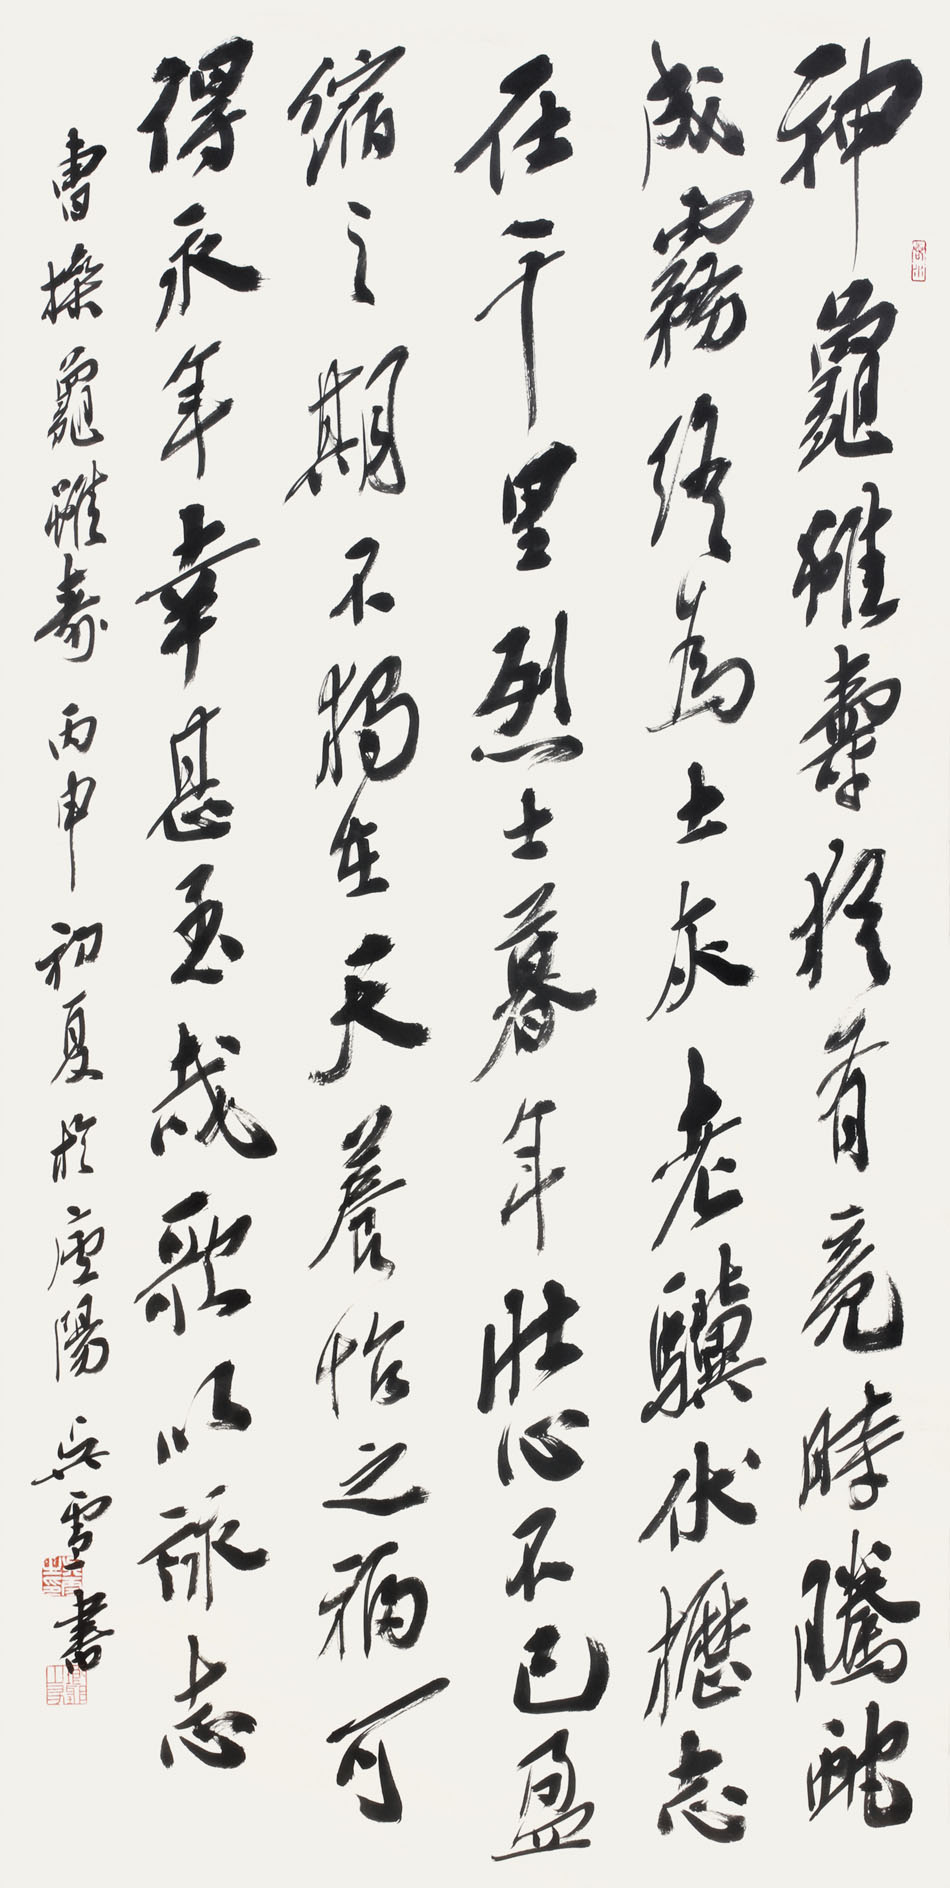 神龜雖壽猶有竟時騰蛇
成霧終為土灰老驥伏櫪志
在千里烈士暮年壯心不已盈
縮之期不獨在天養怡之福可
得永年幸甚至哉歌以詠志
曹操龜雖壽 丙申初夏於廬陽 吳雪書